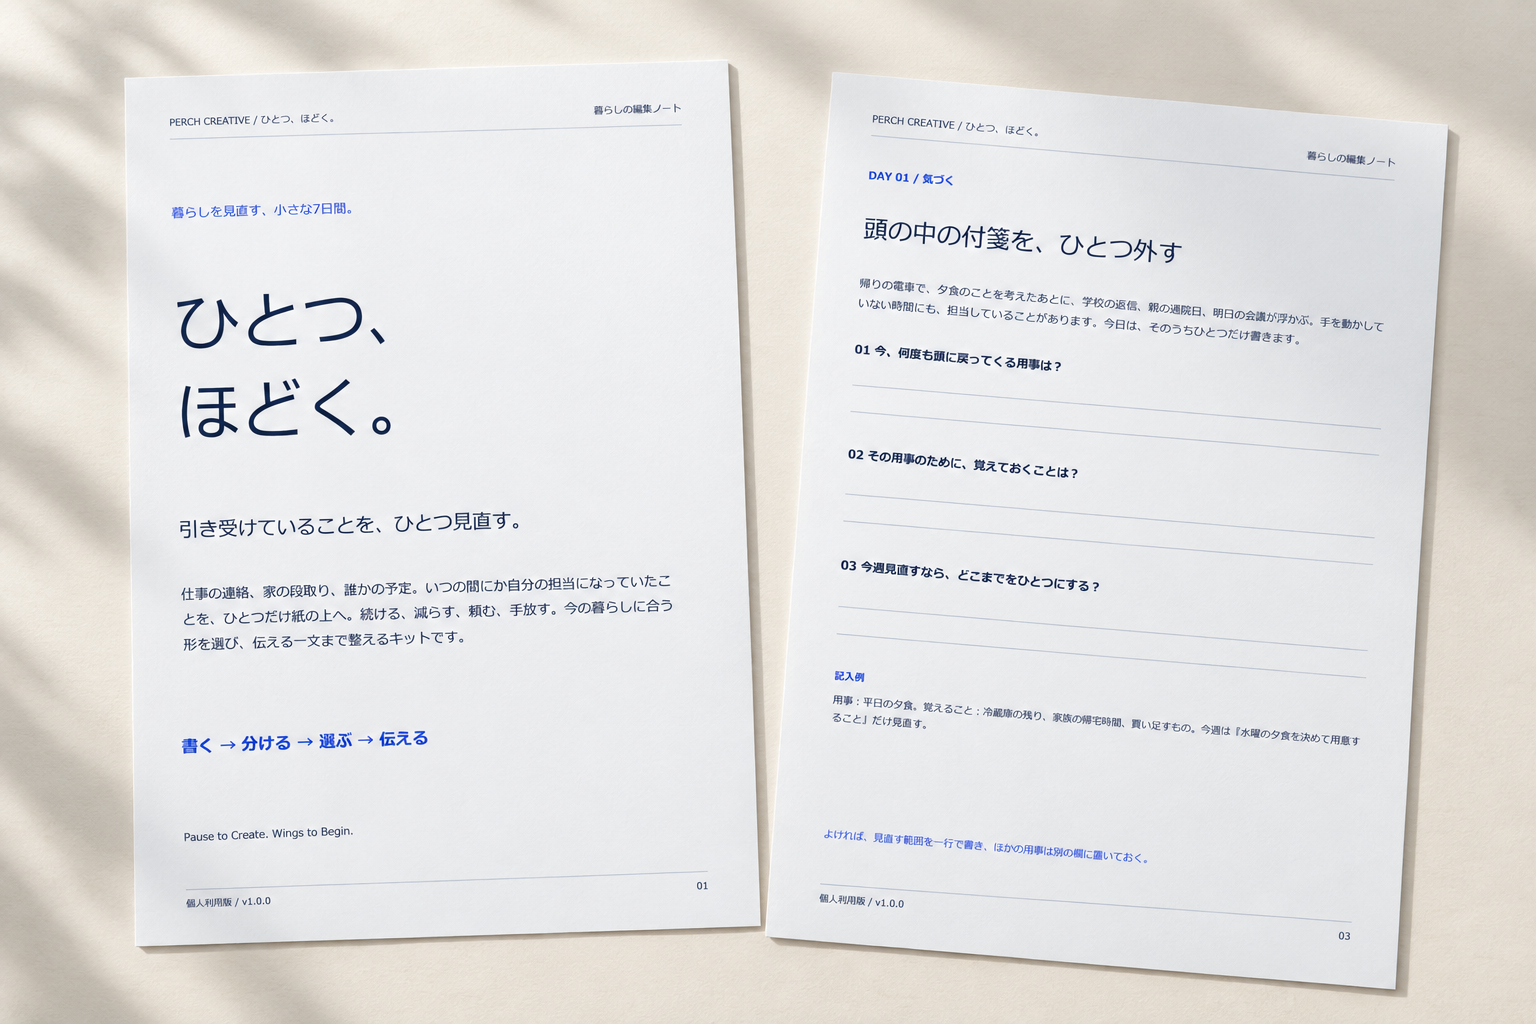 PERCH CREATIVE / ひとつ、ほどく。
暮らしの編集ノート
暮らしを見直す、小さな7日間。
ひとつ、
ほどく。
引き受けていることを、ひとつ見直す。
仕事の連絡、家の段取り、誰かの予定。いつの間にか自分の担当になっていたこ
とを、ひとつだけ紙の上へ。続ける、減らす、頼む、手放す。今の暮らしに合う
形を選び、伝える一文まで整えるキットです。
書く → 分ける → 選ぶ → 伝える
Pause to Create. Wings to Begin.
個人利用版 / v1.0.0
01
PERCH CREATIVE / ひとつ、ほどく。
暮らしの編集ノート
DAY 01 / 気づく
頭の中の付箋を、ひとつ外す
帰りの電車で、夕食のことを考えたあとに、学校の返信、親の通院日、明日の会議が浮かぶ。手を動かして
いない時間にも、担当していることがあります。今日は、そのうちひとつだけ書きます。
01 今、何度も頭に戻ってくる用事は？
02 その用事のために、覚えておくことは？
03 今週見直すなら、どこまでをひとつにする？
記入例
用事：平日の夕食。覚えること：冷蔵庫の残り、家族の帰宅時間、買い足すもの。今週は『水曜の夕食を決めて用意す
ること』だけ見直す。
よければ、見直す範囲を一行で書き、ほかの用事は別の欄に置いておく。
個人利用版 / v1.0.0
03